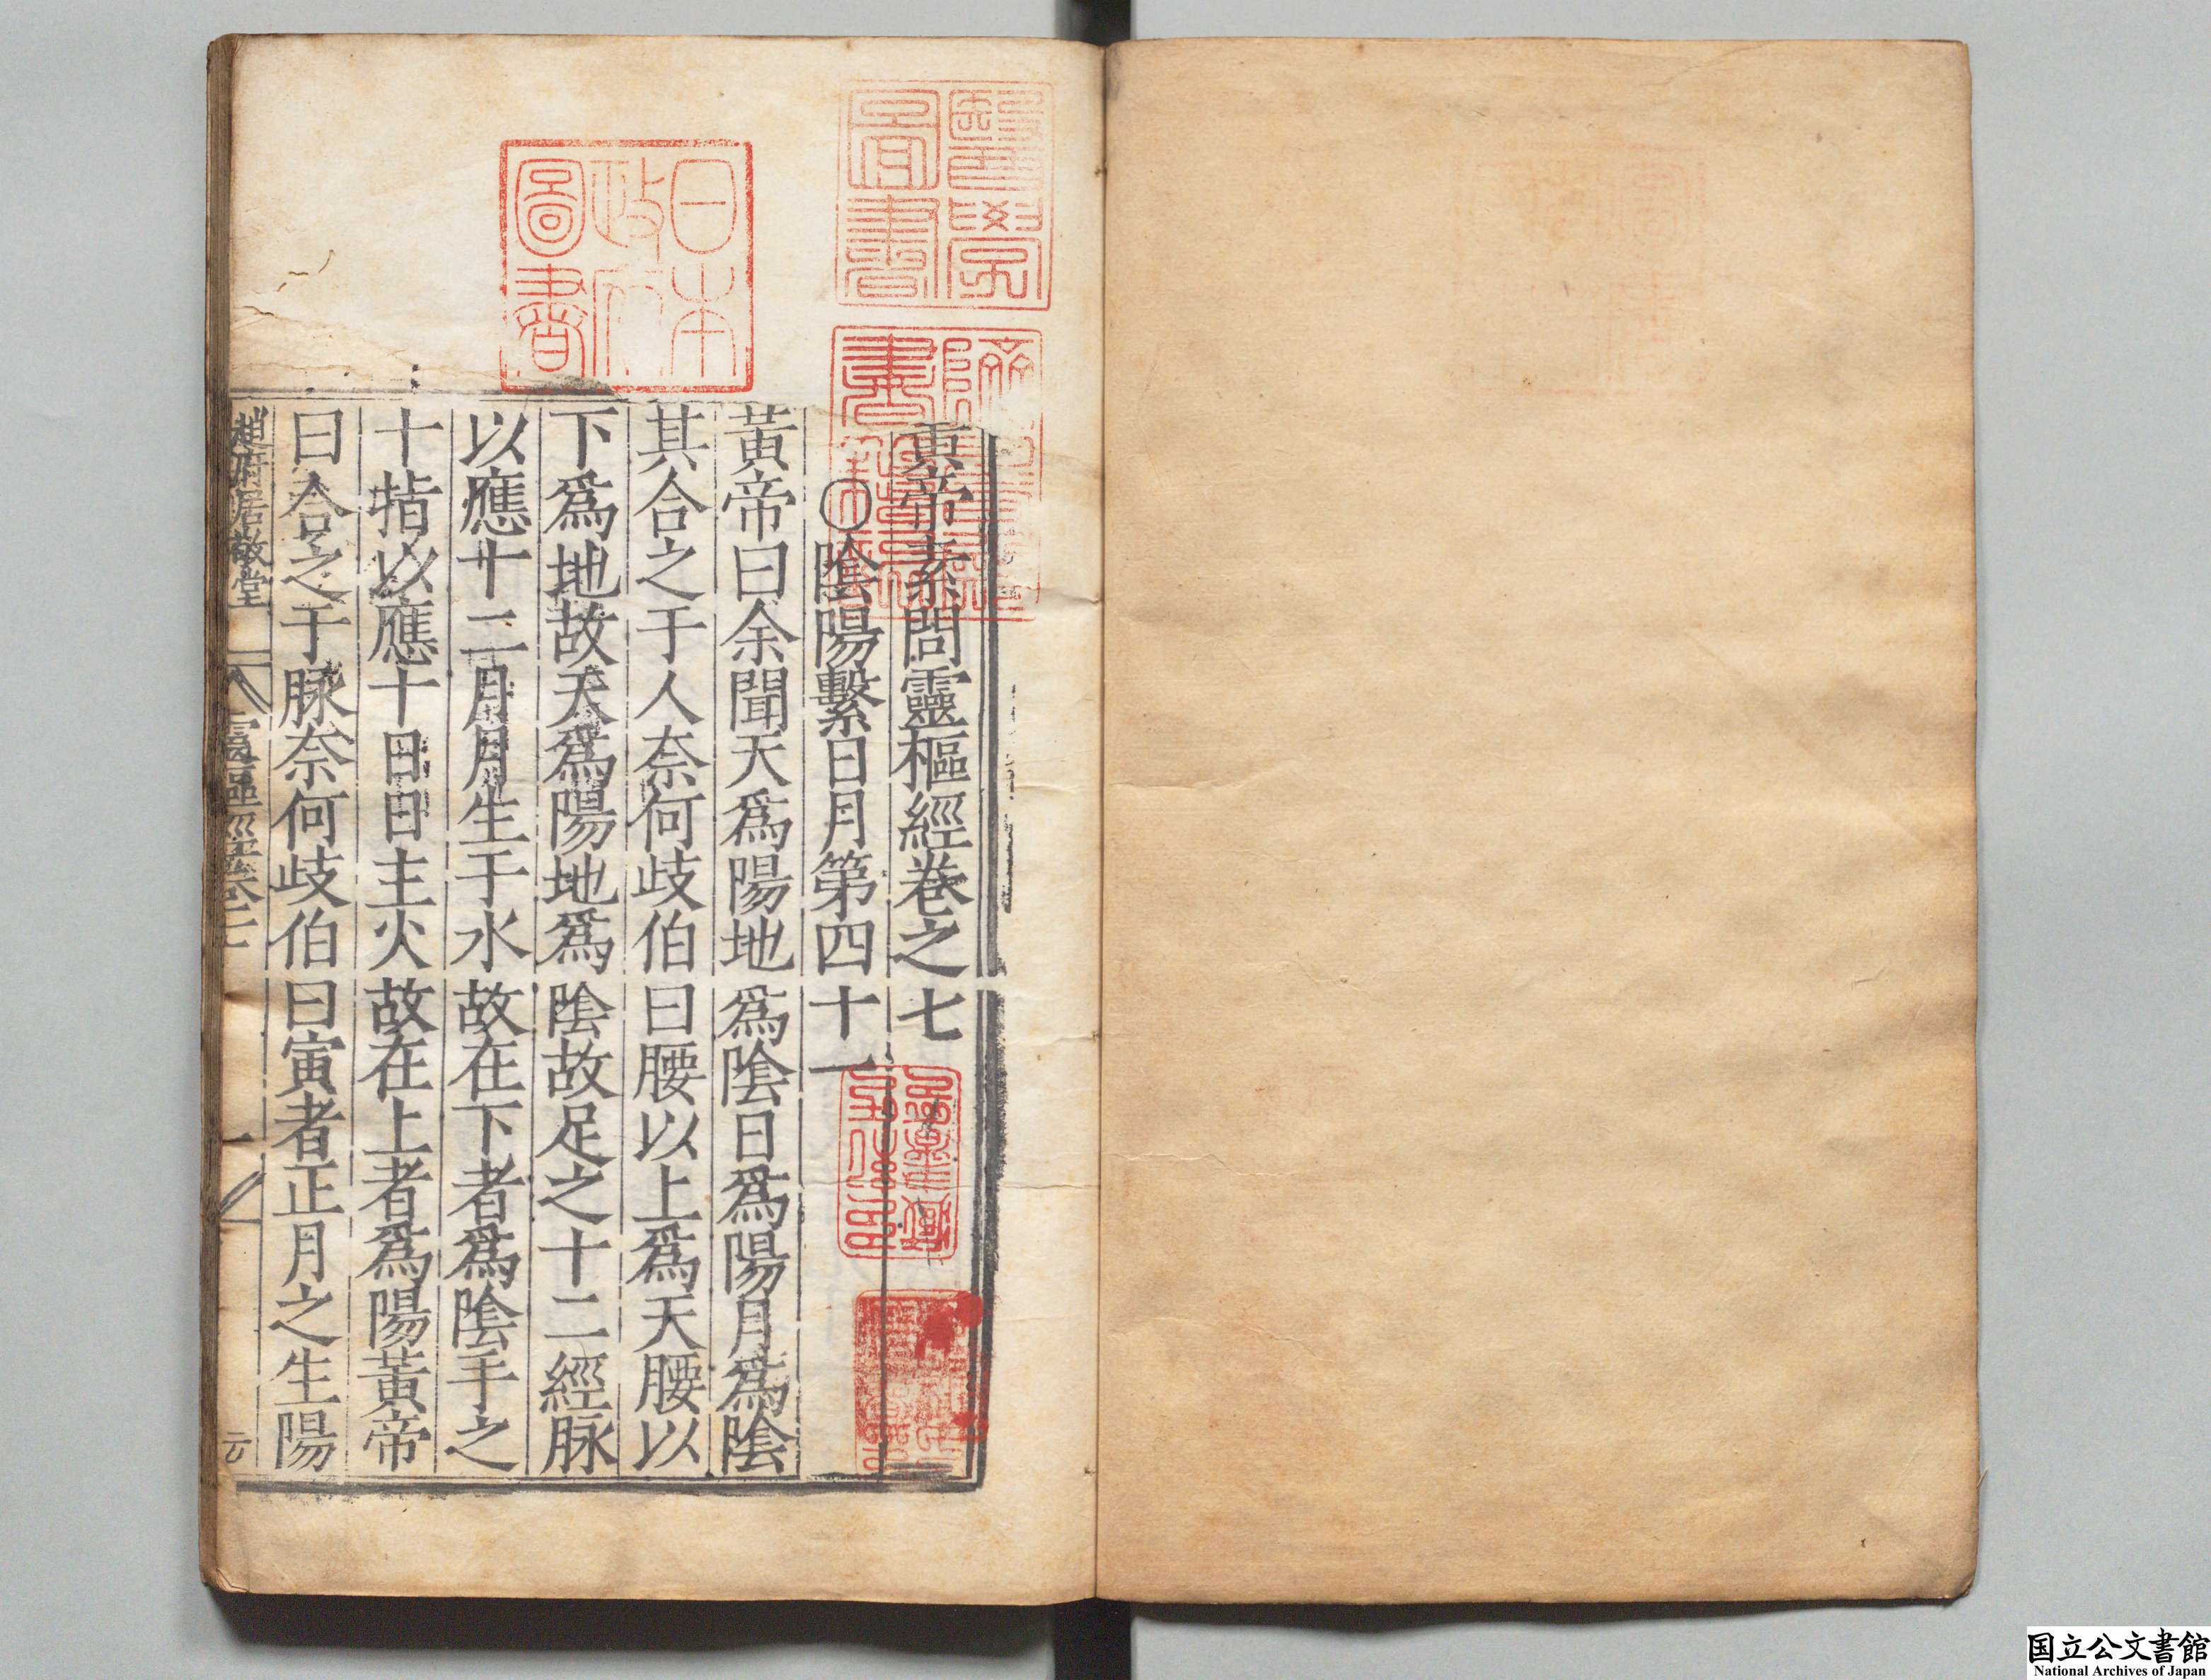 黃帝素問靈樞經卷之七
○陰陽繫日月第四十一
黃帝曰余聞天爲陽地爲陰日爲陽月爲陰
其合之于人奈何歧伯曰腰以上爲天腰以
下爲地故天爲陽地爲陰故足之十二經脉
以應十二月月生于水故在下者爲陰手之
十指以應十日日主火故在上者爲陽黃帝
曰合之于脉奈何歧伯曰寅者正月之生陽
趙府居敬堂
靈樞經卷七
一
云
醫學圖書
日本政府圖書
国立公文書館
National Archives of Japan